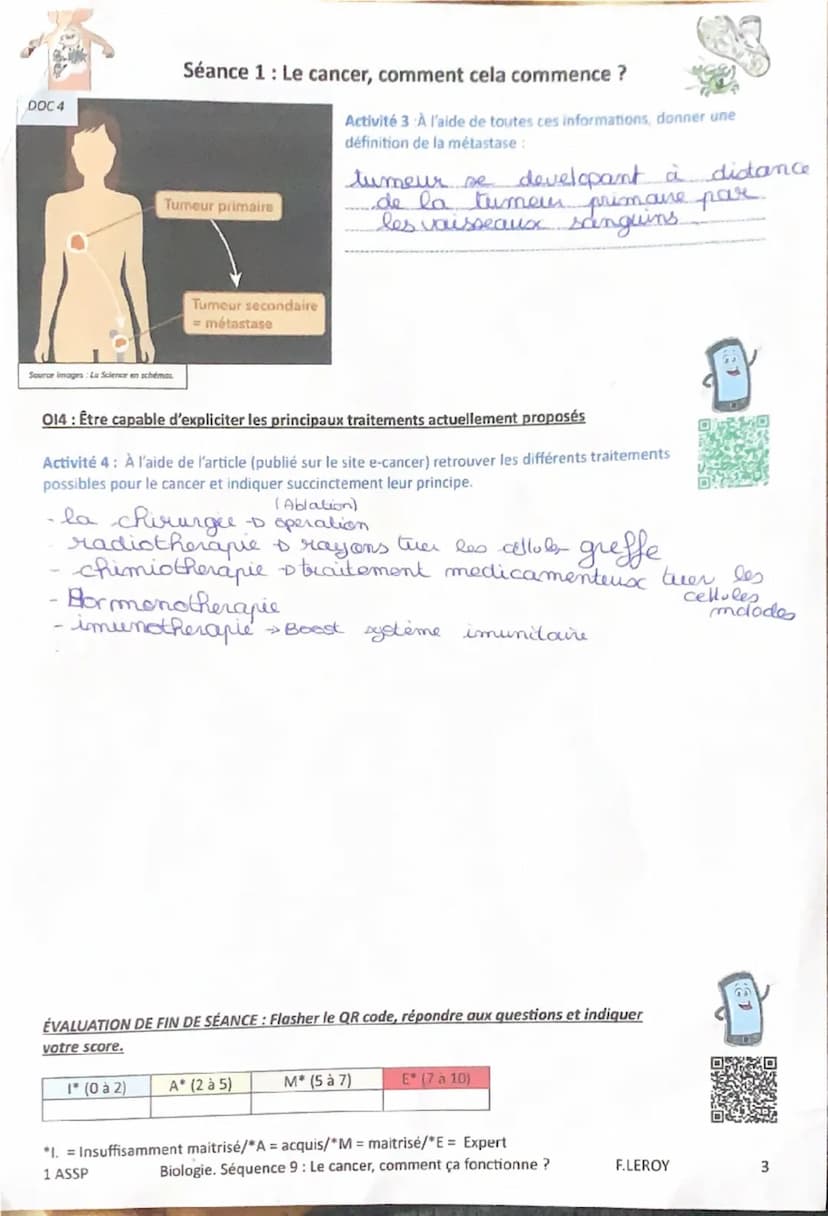 Séance 1 : Le cancer, comment cela commence ?
DOC 4
Tumeur primaire
Tumeur secondaire
= métastase
Source images : La Science en schémas.
Activité 3 : À l'aide de toutes ces informations, donner une
définition de la métastase :
tumeur se developant à distance
de la tumeur primaire par
les vaisseaux sanguins
OI4 : Être capable d'expliciter les principaux traitements actuellement proposés
Activité 4 : À l'aide de l'article (publié sur le site e-cancer) retrouver les différents traitements
possibles pour le cancer et indiquer succinctement leur principe.
(Ablation)
- la chirurgie → operation
radiotherapie → rayons tuer les cellules greffe
- chimiotherapie → traitement medicamenteux tuer les
cellules
malades
- Hormonotherapie
- imunotherapie → Boost système imunitaire
ÉVALUATION DE FIN DE SÉANCE : Flasher le QR code, répondre aux questions et indiquer
votre score.
I* (0 à 2) A* (2 à 5) M* (5 à 7) E* (7 à 10)
*I. = Insuffisamment maitrisé/*A = acquis/*M = maitrisé/*E = Expert
1 ASSP Biologie. Séquence 9 : Le cancer, comment ça fonctionne ? F.LEROY 3